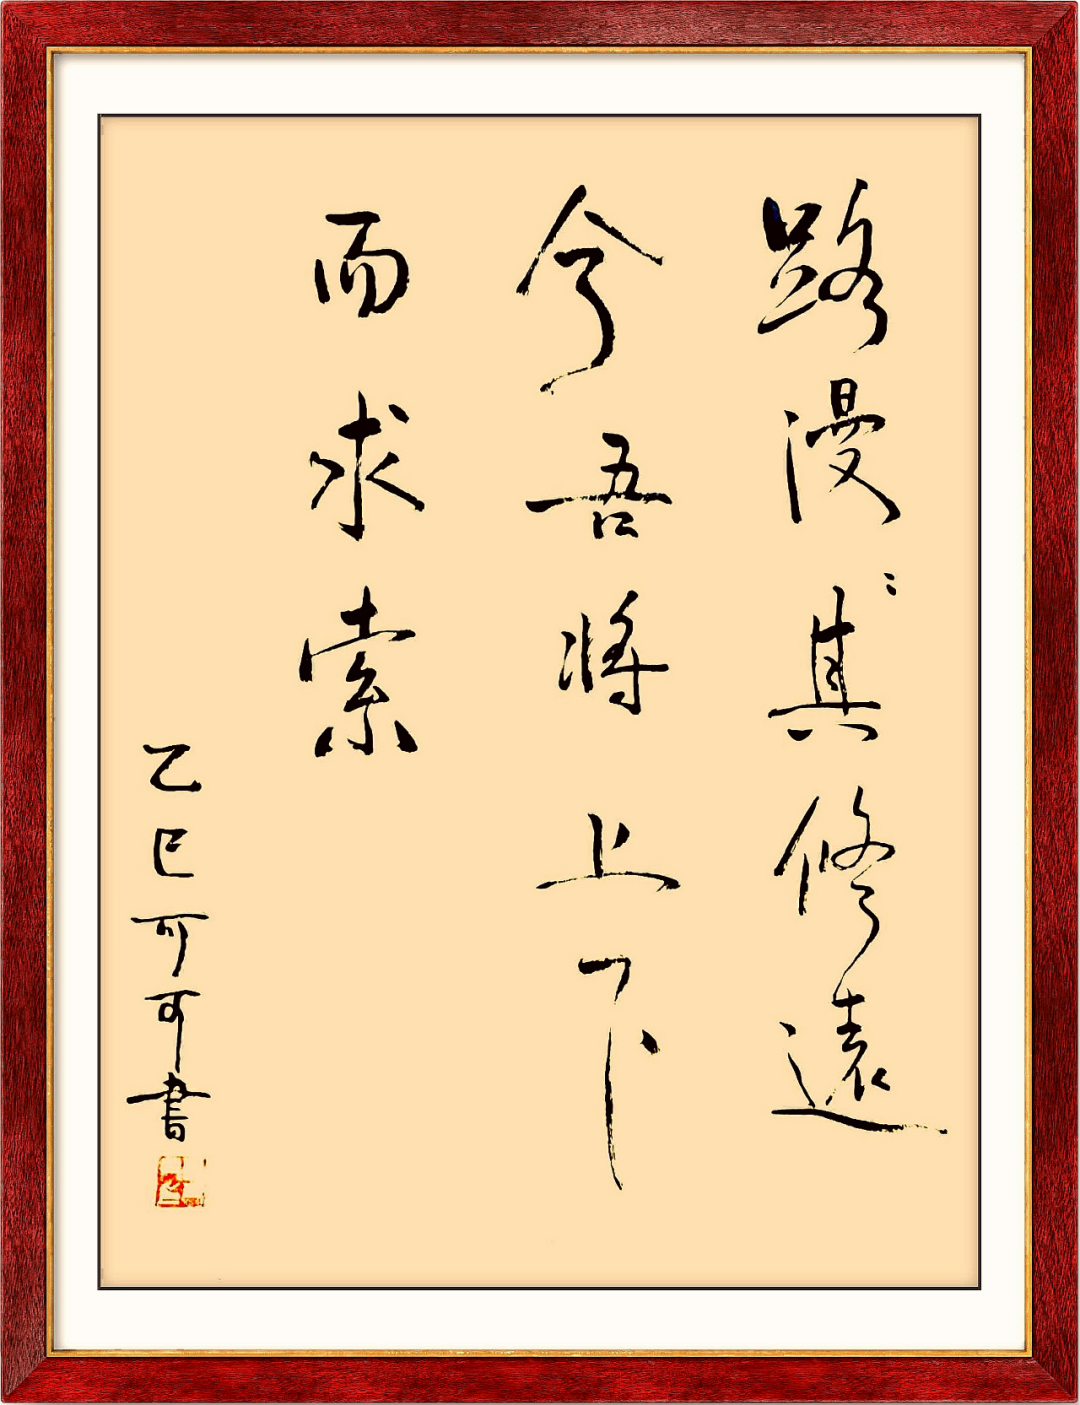 路漫々其修遠
兮吾将上下
而求索
乙巳可可書